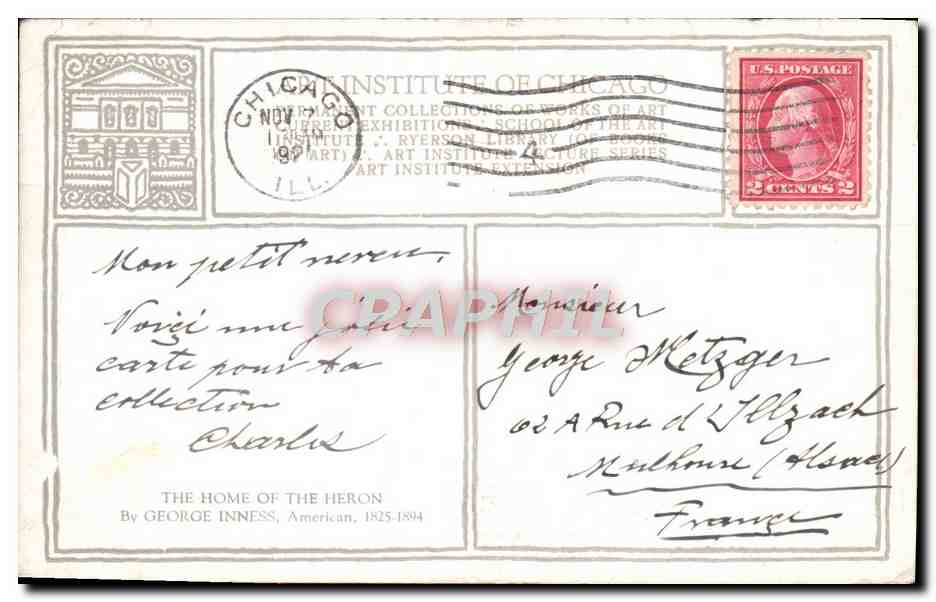 ART INSTITUTE OF CHICAGO
PERMANENT COLLECTIONS OF WORKS OF ART
CURRENT EXHIBITIONS SCHOOL OF THE ART
INSTITUTE RYERSON LIBRARY OF BOOKS
ON ART ART INSTITUTE LECTURE SERIES
ART INSTITUTE EXTENSION
CHICAGO
NOV 7
ILL.
U.S. POSTAGE
2 CENTS 2
Mon petit neveu,
Voiçi une jolie
carte pour ta
collection
Charles
THE HOME OF THE HERON
By GEORGE INNESS, American, 1825-1894
Monsieur
George Metzger
62 A Rue d'Illzach
Mulhouse (Alsace)
France
CPAPHIL